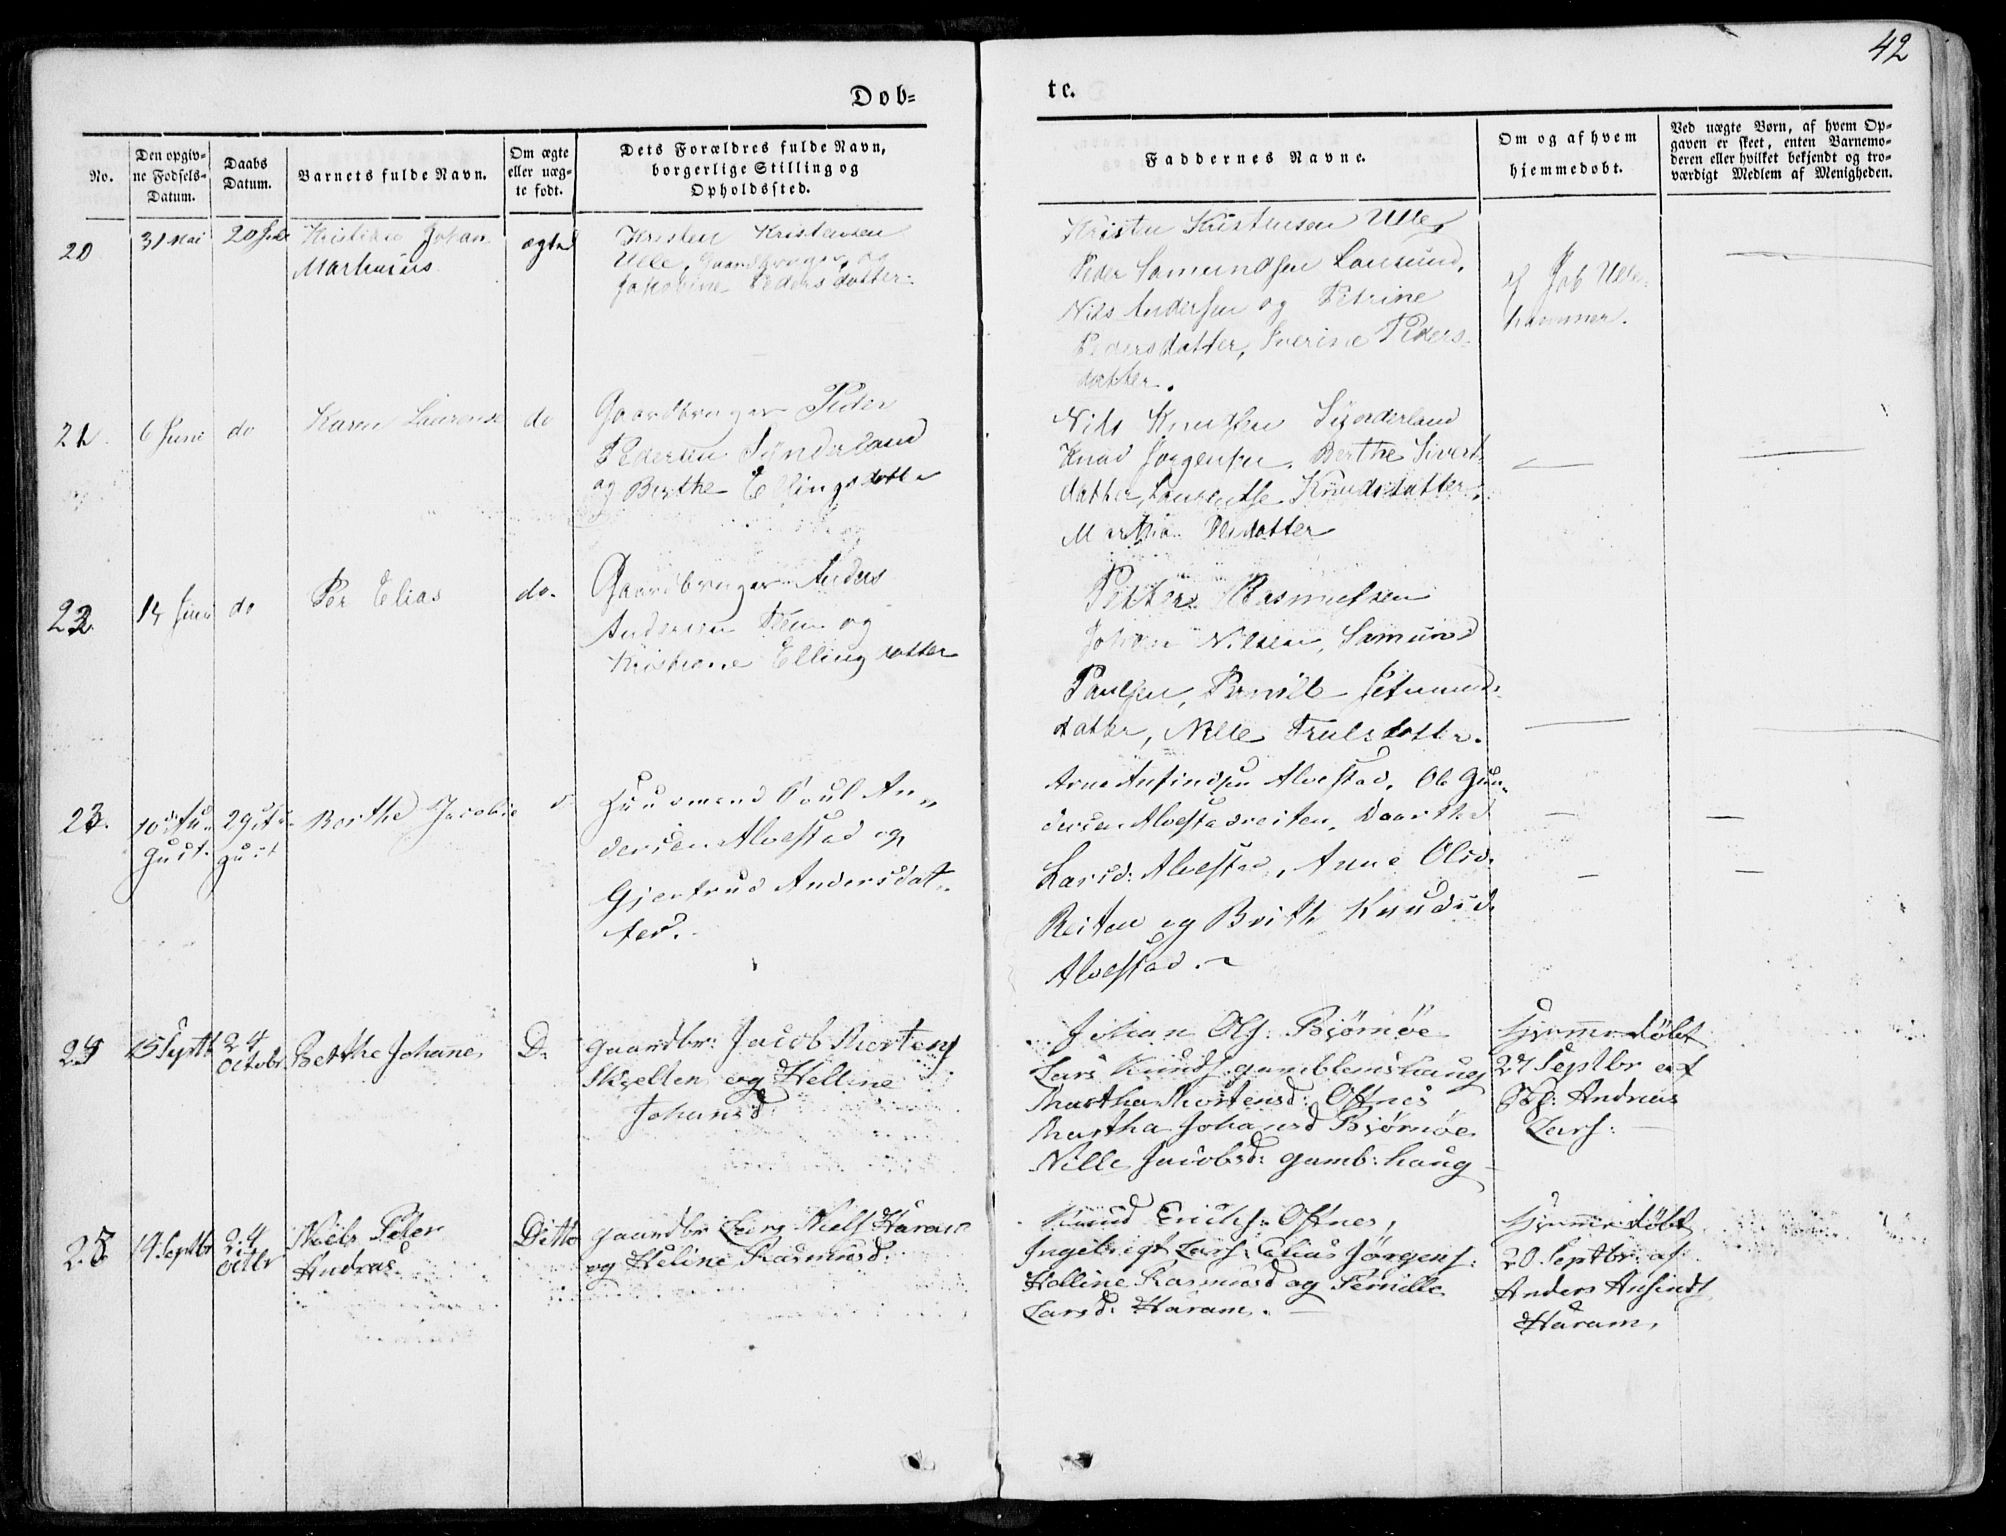 42
Døb=
te.
No.
Den opgiv=
ne Fødsels=
Datum.
Daabs
Datum.
Barnets fulde Navn.
Om ægte
eller uæg=
te født.
Dets Forældres fulde Navn,
borgerlige Stilling og
Opholdssted.
Faddernes Navne.
Om og af hvem
hjemmedøbt.
Ved uægte Børn, af hvem Op=
gaven er skeet, enten Barnemo=
deren eller hvilket bekjendt og tro=
værdigt Medlem af Menigheden.
20
31 Mai
20 Juli
Kristian Johan
Marhuius
ægte
Kristen Kristensen
Ulle, Gaardbruger og
Jakobine Pedersdatter
Kristen Kristensen Ulle,
Peder Samundsen Longund,
Nils Andersen og Petrine
Pedersdatter, Sverine Peders
datter.
af Job Ulle
hammer.
21.
6 Juni
do
Karen Laurense
do
Gaardbruger Peder
Pedersen Synderland
og Berthe Ellingsdatter
Nils Knudsen Synderland
Knud Jørgensen, Berthe Sivert
datter, Laurentse Knudsdatter,
Martha Olsdatter
22.
14 Juni
do
Per Elias
do.
Gaardbruger Anders
Andersen og
Kristiane Ellingsdatter
Petter Rasmussen
Johan Nilsen, Samund
Paulsen, Pernil
datter, Nille Trulsdatter.
23.
10de Au=
gust.
29 Au=
gust
Berthe Jacobie
d
Huusmand Poul An=
dersen Alvestad og
Gjertrud Andersdat=
ter.
Arne Anfindsen Alvestad, Ole Gun=
dersen Alvestadreiten, Daarthe
Larsd: Alvestad, Anne Olsd.
Reiten og Brith Knudsd.
Alvestad.
24
15 Septb
24
Octobr
Bethe Johanne
D.
gaardbr: Jacob Mortens
Skjelten og Helline
Johansd
Johan Ols: Bjørnøe
Lars Knuds: gamblemshaug
Martha Mortensd: Ofnes
Martha Johansd Bjørnøe
Nille Jacobsd: gamb: haug
Hjemmedøbt
27 Septbr af
Andreas
Lars:
25
19 Septbr
24
Octbr
Niels Peter
Andreas
Ditto
gaardbr Lars Niels Haram
og Heline Rasmusd.
Knud Ericks: Ofnes,
Ingebrigt Lars: Elias Jørgens:
Helline Rasmusd og Pernille
Larsd: Haram.
Hjemmedøbt
20 Septbr af
Anders Anfinds
Haram,